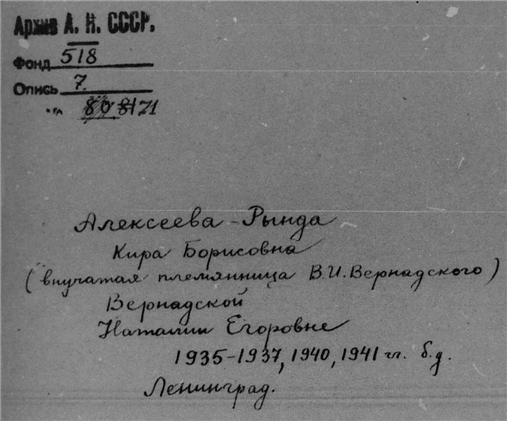 Архив А. Н. СССР.
Фонд 518
Опись 7
71
Алексеева-Рында
Кира Борисовна
(внучатая племянница В.И.Вернадского)
Вернадской
Наталии Егоровне
1935-1937, 1940, 1941 гг. б.д.
Ленинград.